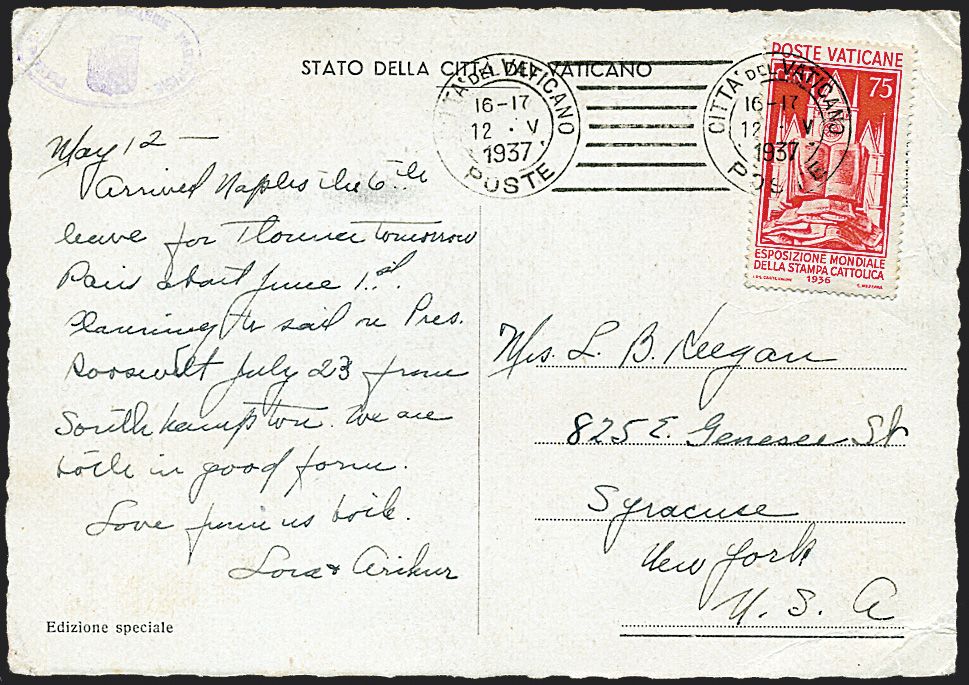 STATO DELLA CITTÀ DEL VATICANO
CITTA' DEL VATICANO
16-17
12 · V
1937
POSTE
CITTA' DEL VATICANO
16-17
12 · V
1937
POSTE
POSTE VATICANE
75
ESPOSIZIONE MONDIALE
DELLA STAMPA CATTOLICA
1936
May 12 —
Arrived Naples the 6th
leave for Florence tomorrow
Paris about June 1st.
Planning to sail on Pres.
Roosevelt July 23 from
South hampton. We are
both in good form.
Love from us both.
Lora & Arthur
Edizione speciale
Mrs. L. B. Keegan
825 E. Genesee St
Syracuse
New York
U. S. A